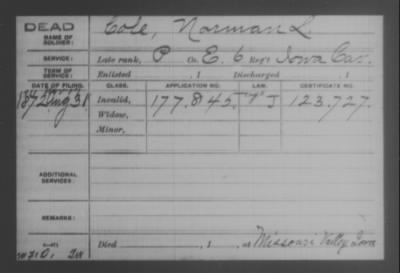 DEAD
NAME OF SOLDIER: Cole, Norman L.
SERVICE: Late rank, P Co. E. 6 Reg't Iowa Cav.
TERM OF SERVICE: Enlisted , 1 Discharged , 1
DATE OF FILING. CLASS. APPLICATION NO. LAW. CERTIFICATE NO.
1872 Aug 31 Invalid, 177.845 J 123.727.
Widow,
Minor,
ADDITIONAL SERVICES:
REMARKS:
Died , 1 , at Missouri Valley Iowa